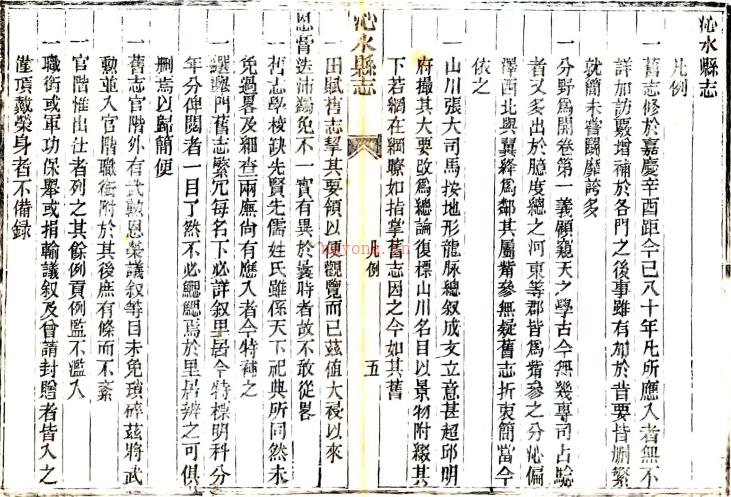 沁水縣志
凡例
一舊志修於嘉慶辛酉距今已八十年凡所應入者無不
詳加訪覈增補於各門之後事雖有加於昔要皆刪繁
就簡未嘗鬭靡誇多
一分野爲開卷第一義顧窺天之學古今無幾專司占驗
者又多出於臆度總之河東等郡皆爲觜參之分沁偏
澤西北與翼絳爲鄰其屬觜參無疑舊志折衷簡當今
依之
一山川張大司馬按地形龍脉總叙成文立意甚超邱明
府撮其大要改爲總論復標山川名目以景物附綴其
下若網在綱瞭如指掌舊志因之今如其舊
沁水縣志
凡例
五
一田賦舊志挈其要領以便觀覽而已茲值大祲以來
恩膏迭沛蠲免不一實有異於曩時者故不敢從畧
一舊志學校缺先賢先儒姓氏雖係天下祀典所同然未
免過畧及細查兩廡尚有應入者今特補之
一選舉門舊志繁冗每名下必詳叙里居今特標明科分
年分俾閱者一目了然不必鰓鰓焉於里居辨之可俱
刪焉以歸簡便
一舊志官階外有武勲恩榮議叙等目未免瑣碎茲將武
勲並入官階職銜附於其後庶有條而不紊
一官階惟出仕者列之其餘例貢例監不濫入
一職銜或軍功保舉或捐輸議叙及曾請封贈者皆入之
僅頂戴榮身者不備録